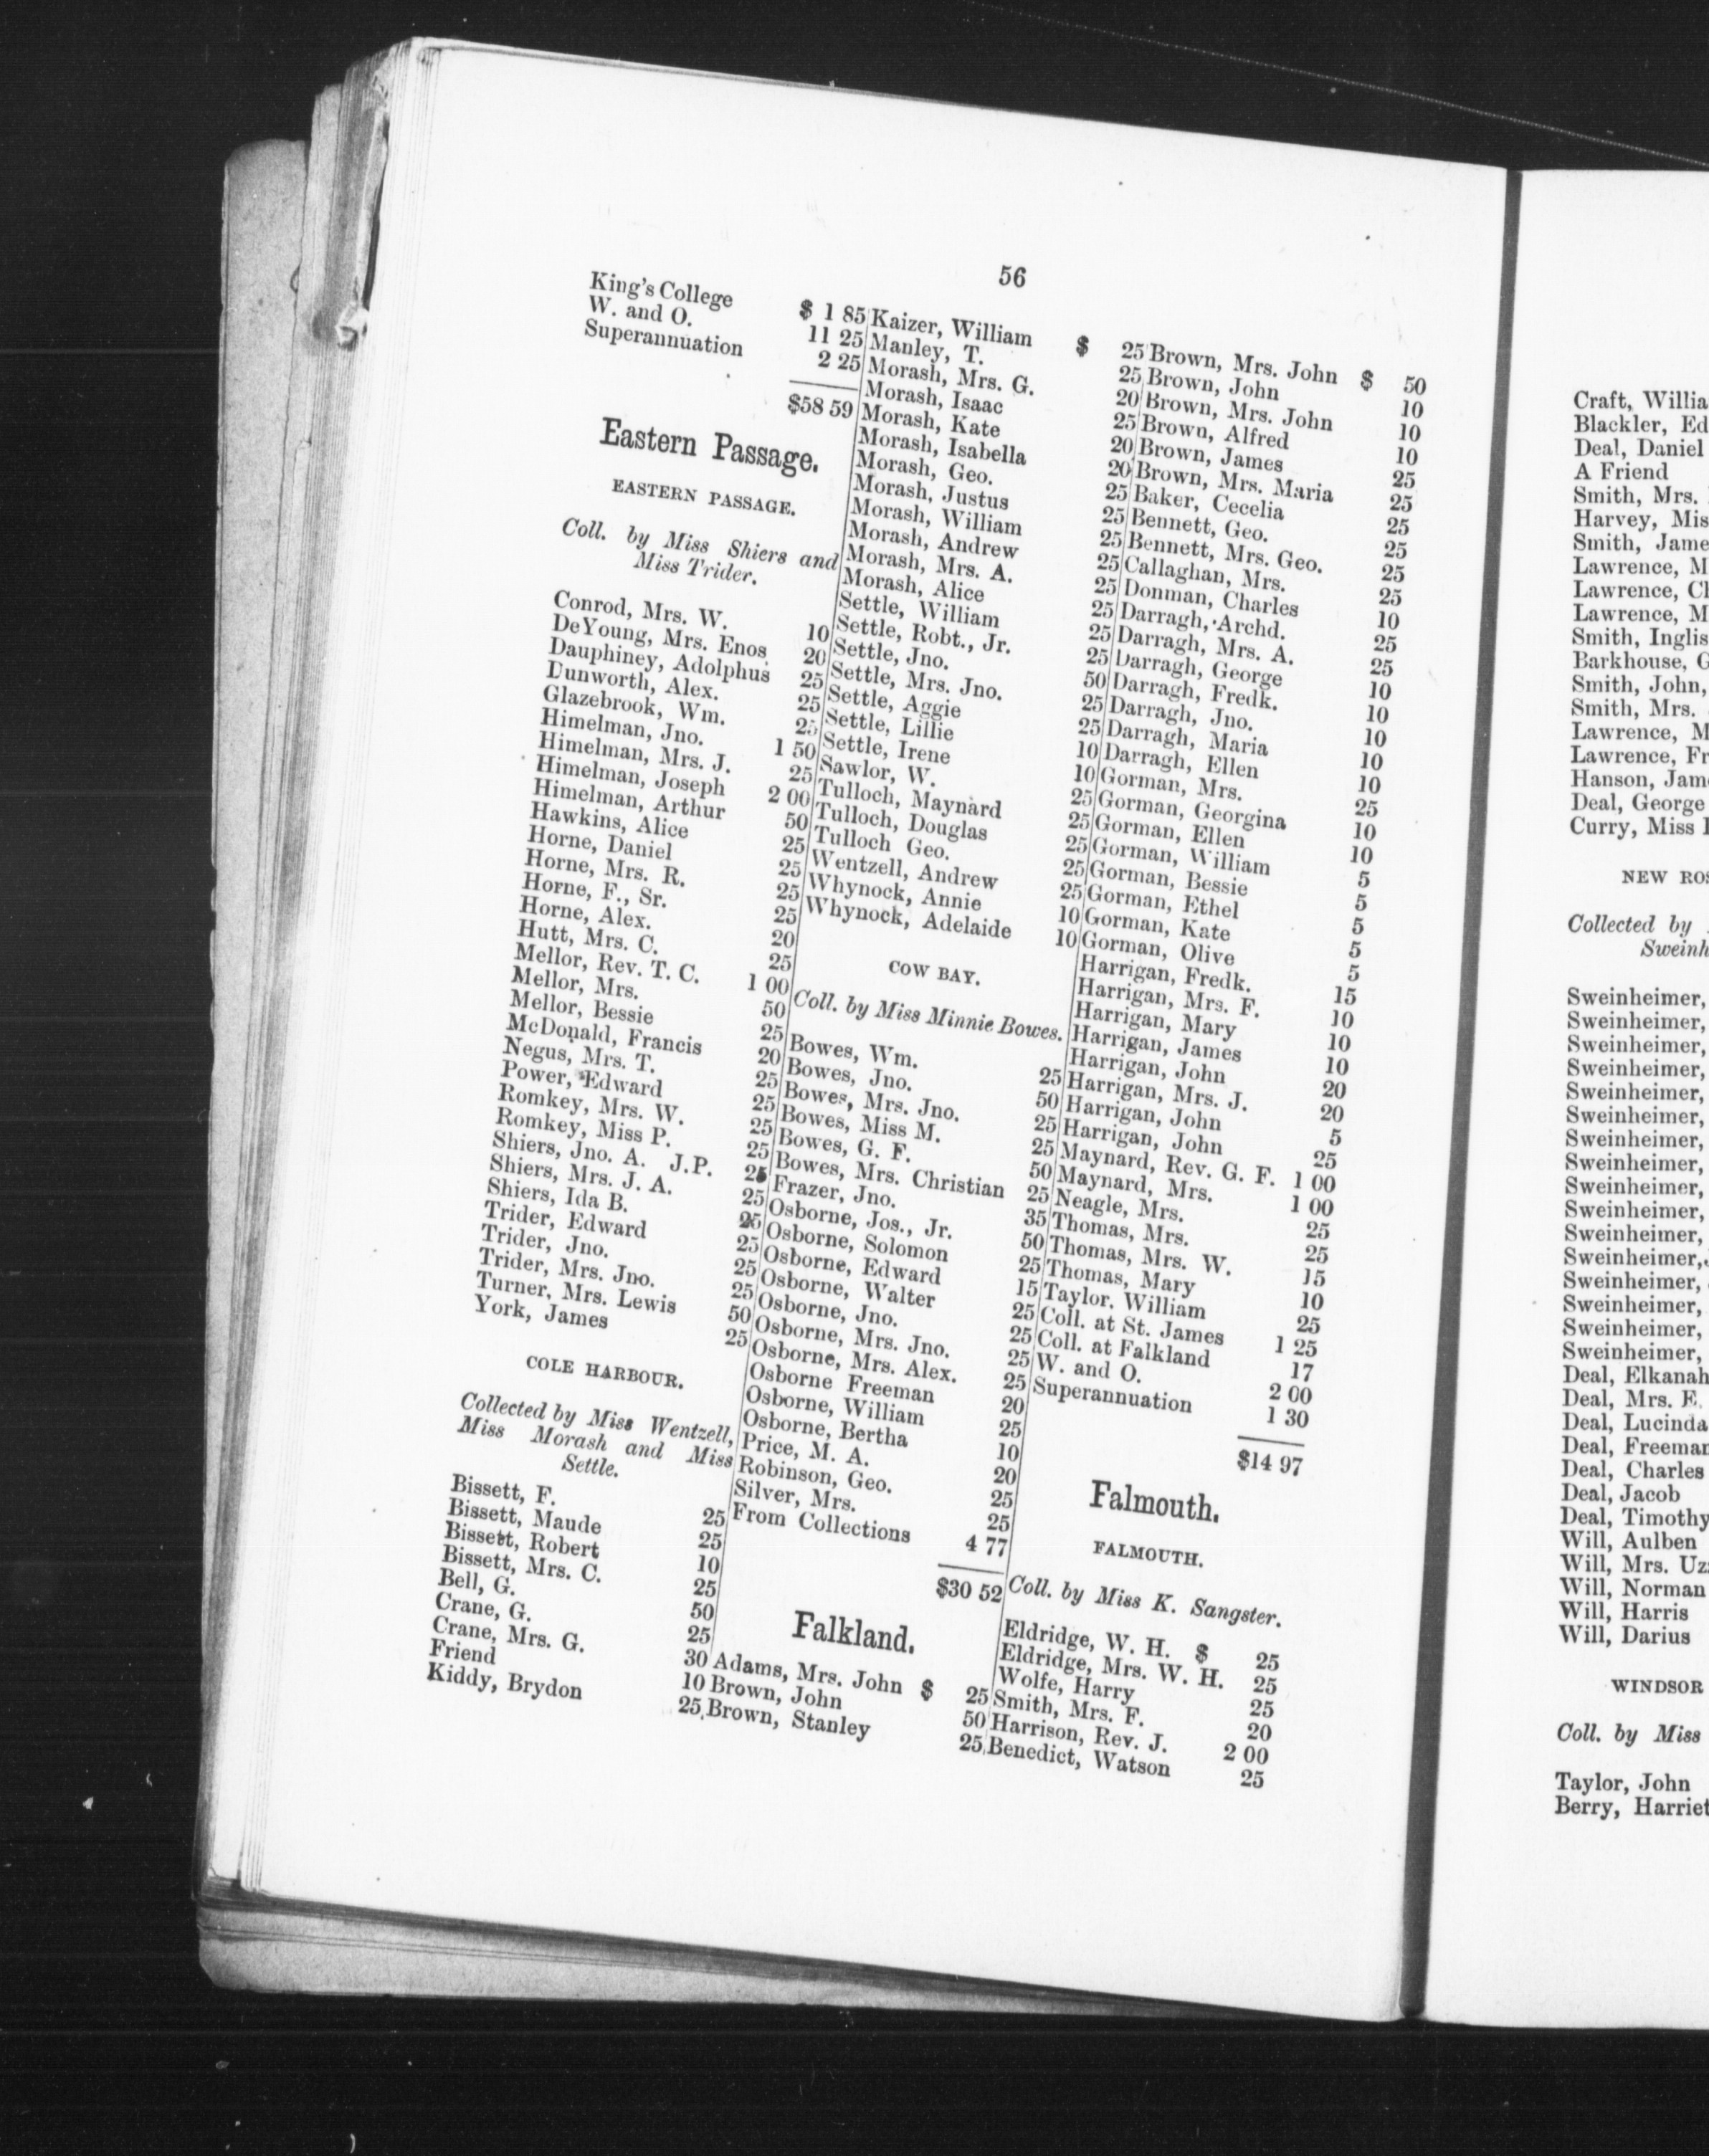 56
King's College $ 1 85
W. and O. 11 25
Superannuation 2 25
$58 59
Eastern Passage.
EASTERN PASSAGE.
Coll. by Miss Shiers and
Miss Trider.
Conrod, Mrs. W. 10
DeYoung, Mrs. Enos 20
Dauphiney, Adolphus 25
Dunworth, Alex. 25
Glazebrook, Wm. 25
Himelman, Jno. 1 50
Himelman, Mrs. J. 25
Himelman, Joseph 2 00
Himelman, Arthur 50
Hawkins, Alice 25
Horne, Daniel 25
Horne, Mrs. R. 25
Horne, F., Sr. 25
Horne, Alex. 20
Hutt, Mrs. C. 25
Mellor, Rev. T. C. 1 00
Mellor, Mrs. 50
Mellor, Bessie 25
McDonald, Francis 20
Negus, Mrs. T. 25
Power, Edward 25
Romkey, Mrs. W. 25
Romkey, Miss P. 25
Shiers, Jno. A. J.P. 25
Shiers, Mrs. J. A. 25
Shiers, Ida B. 25
Trider, Edward 25
Trider, Jno. 25
Trider, Mrs. Jno. 25
Turner, Mrs. Lewis 50
York, James 25
COLE HARBOUR.
Collected by Miss Wentzell,
Miss Morash and Miss
Settle.
Bissett, F. 25
Bissett, Maude 25
Bissett, Robert 10
Bissett, Mrs. C. 25
Bell, G. 50
Crane, G. 25
Crane, Mrs. G. 30
Friend 10
Kiddy, Brydon 25
Kaizer, William $ 25
Manley, T. 25
Morash, Mrs. G. 20
Morash, Isaac 25
Morash, Kate 20
Morash, Isabella 20
Morash, Geo. 25
Morash, Justus 25
Morash, William 25
Morash, Andrew 25
Morash, Mrs. A. 25
Morash, Alice 25
Settle, William 25
Settle, Robt., Jr. 25
Settle, Jno. 50
Settle, Mrs. Jno. 25
Settle, Aggie 25
Settle, Lillie 10
Settle, Irene 10
Sawlor, W. 25
Tulloch, Maynard 25
Tulloch, Douglas 25
Tulloch Geo. 25
Wentzell, Andrew 25
Whynock, Annie 10
Whynock, Adelaide 10
COW BAY.
Coll. by Miss Minnie Bowes.
Bowes, Wm. 25
Bowes, Jno. 50
Bowes, Mrs. Jno. 25
Bowes, Miss M. 25
Bowes, G. F. 50
Bowes, Mrs. Christian 25
Frazer, Jno. 35
Osborne, Jos., Jr. 50
Osborne, Solomon 25
Osborne, Edward 15
Osborne, Walter 25
Osborne, Jno. 25
Osborne, Mrs. Jno. 25
Osborne, Mrs. Alex. 25
Osborne Freeman 20
Osborne, William 25
Osborne, Bertha 10
Price, M. A. 20
Robinson, Geo. 25
Silver, Mrs. 25
From Collections 4 77
$30 52
Falkland.
Adams, Mrs. John $ 25
Brown, John 50
Brown, Stanley 25
Brown, Mrs. John $ 50
Brown, John 10
Brown, Mrs. John 10
Brown, Alfred 10
Brown, James 25
Brown, Mrs. Maria 25
Baker, Cecelia 25
Bennett, Geo. 25
Bennett, Mrs. Geo. 25
Callaghan, Mrs. 25
Donman, Charles 10
Darragh, Archd. 25
Darragh, Mrs. A. 25
Darragh, George 10
Darragh, Fredk. 10
Darragh, Jno. 10
Darragh, Maria 10
Darragh, Ellen 10
Gorman, Mrs. 25
Gorman, Georgina 10
Gorman, Ellen 10
Gorman, William 5
Gorman, Bessie 5
Gorman, Ethel 5
Gorman, Kate 5
Gorman, Olive 5
Harrigan, Fredk. 15
Harrigan, Mrs. F. 10
Harrigan, Mary 10
Harrigan, James 10
Harrigan, John 20
Harrigan, Mrs. J. 20
Harrigan, John 5
Harrigan, John 25
Maynard, Rev. G. F. 1 00
Maynard, Mrs. 1 00
Neagle, Mrs. 25
Thomas, Mrs. 25
Thomas, Mrs. W. 15
Thomas, Mary 10
Taylor. William 25
Coll. at St. James 1 25
Coll. at Falkland 17
W. and O. 2 00
Superannuation 1 30
$14 97
Falmouth.
FALMOUTH.
Coll. by Miss K. Sangster.
Eldridge, W. H. $ 25
Eldridge, Mrs. W. H. 25
Wolfe, Harry 25
Smith, Mrs. F. 20
Harrison, Rev. J. 2 00
Benedict, Watson 25
Craft,
Blackler,
Deal, Daniel
A Friend
Smith, Mrs.
Harvey,
Smith,
Lawrence,
Lawrence,
Lawrence,
Smith, Inglis
Barkhouse,
Smith, John,
Smith, Mrs.
Lawrence,
Lawrence,
Hanson,
Deal, George
Curry, Miss
NEW
Collected by
Sweinheimer,
Sweinheimer,
Sweinheimer,
Sweinheimer,
Sweinheimer,
Sweinheimer,
Sweinheimer,
Sweinheimer,
Sweinheimer,
Sweinheimer,
Sweinheimer,
Sweinheimer,
Sweinheimer,
Sweinheimer,
Sweinheimer,
Sweinheimer,
Deal, Elkanah
Deal, Mrs. E.
Deal, Lucinda
Deal, Freeman
Deal, Charles
Deal, Jacob
Deal, Timothy
Will, Aulben
Will, Mrs.
Will, Norman
Will, Harris
Will, Darius
WINDSOR
Coll. by Miss
Taylor, John
Berry, Harriet